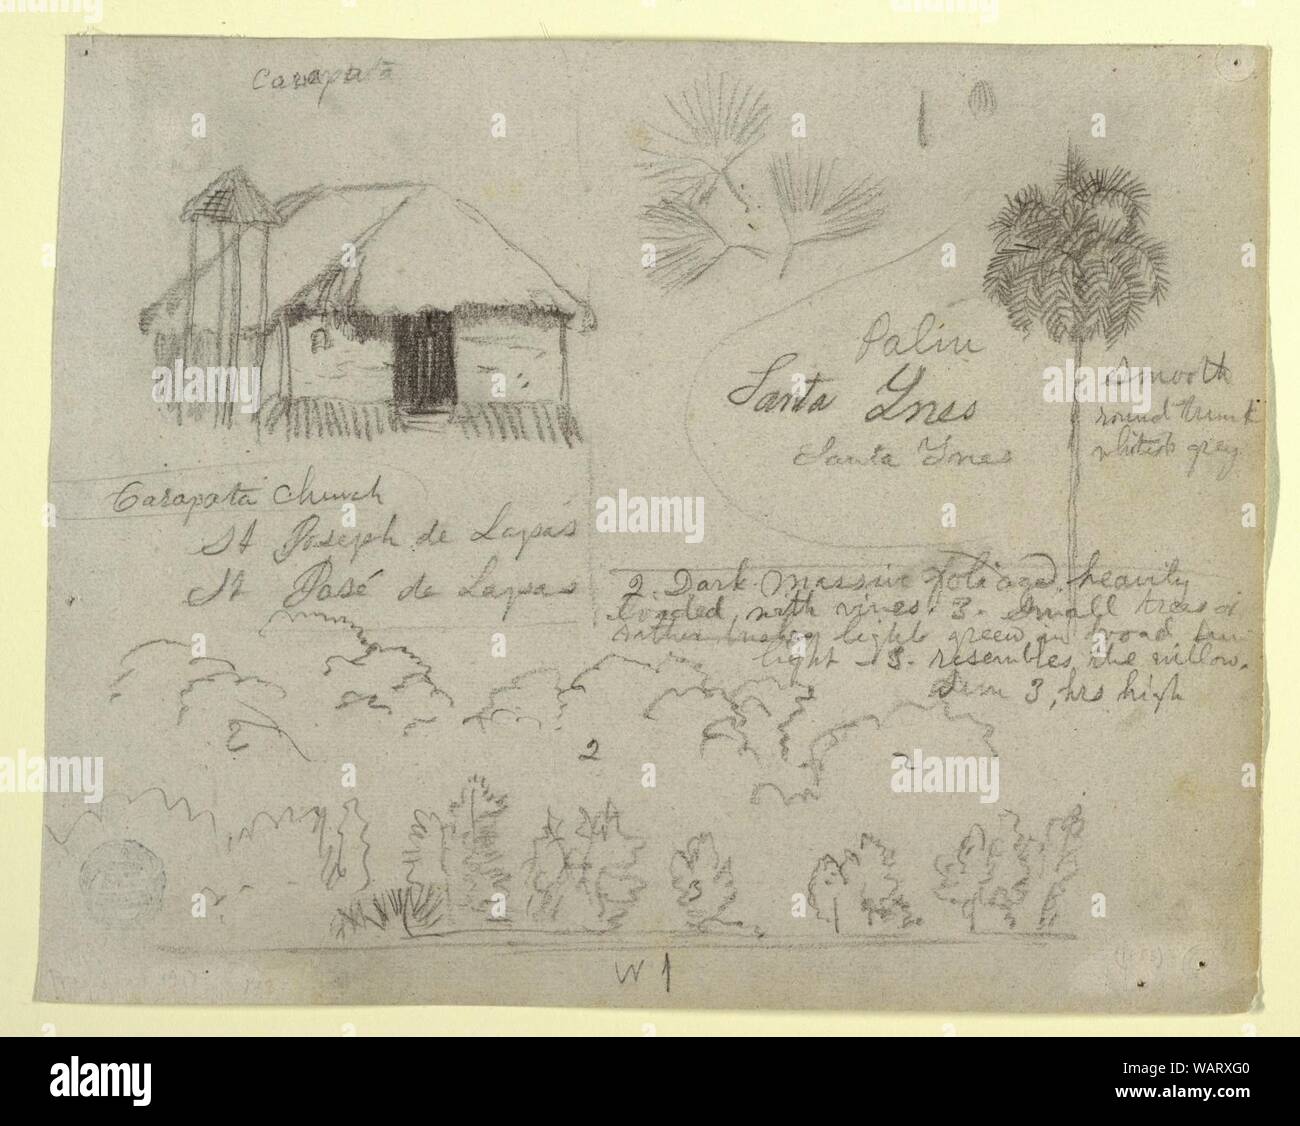 Carapata
Palm
Santa Ynes
Santa Ynes
Smooth
round trunk
whitish grey
Carapata Church
St Joseph de Lapas
St José de Lapas
2. Dark massive foliage heavily
loaded with vines. 3. Small trees or
rather bushes light green in broad sun
light - 3. resembles the willow.
Sun 3 hrs high
2
2
3
W 1
alamy
alamy
Image ID: WARXG0
www.alamy.com